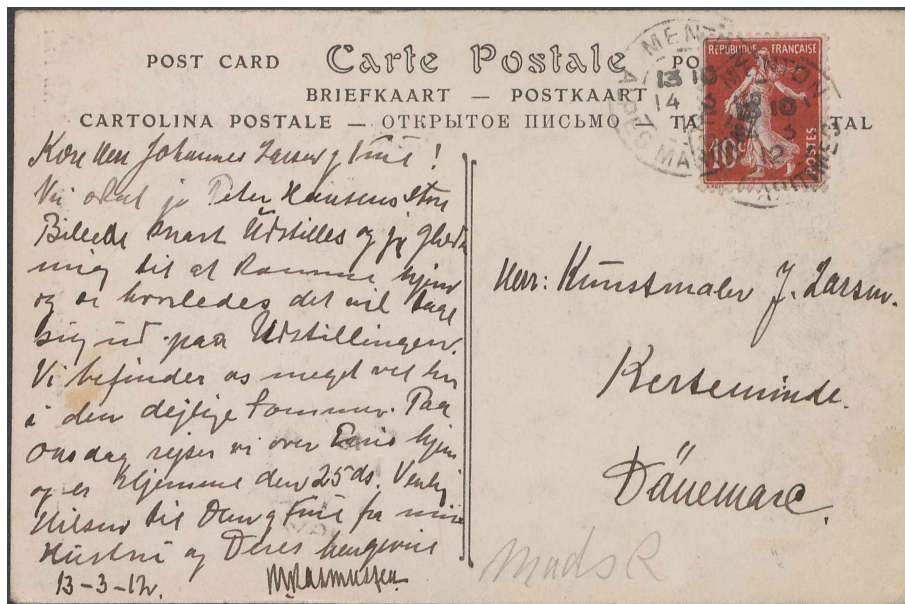 POST CARD Carte Postale PO
BRIEFKAART — POSTKAART
CARTOLINA POSTALE — ОТКРЫТОЕ ПИСЬМО TA TAL
RÉPUBLIQUE FRANÇAISE
10c
POSTES
MENTON
13 10
14
MENTON
10
3
12
Kære Herr Johannes Larsen og Frue!
Vi skal jo Peter Hansens store
Billede snart Udstilles og jeg glæder
mig til at komme hjem
og se hvorledes det vil tage
sig ud paa Udstillingen.
Vi befinder os meget vel her
i den dejlige Sommer. Paa
Onsdag rejser vi over Paris hjem
og er Hjemme den 25 ds. Venlig
Hilsen til Dem og Frue fra min
Hustru og Deres hengivne
13-3-12. M. Rasmussen
Herr: Kunstmaler J. Larsen.
Kerteminde.
Dänemarc.
Mads R